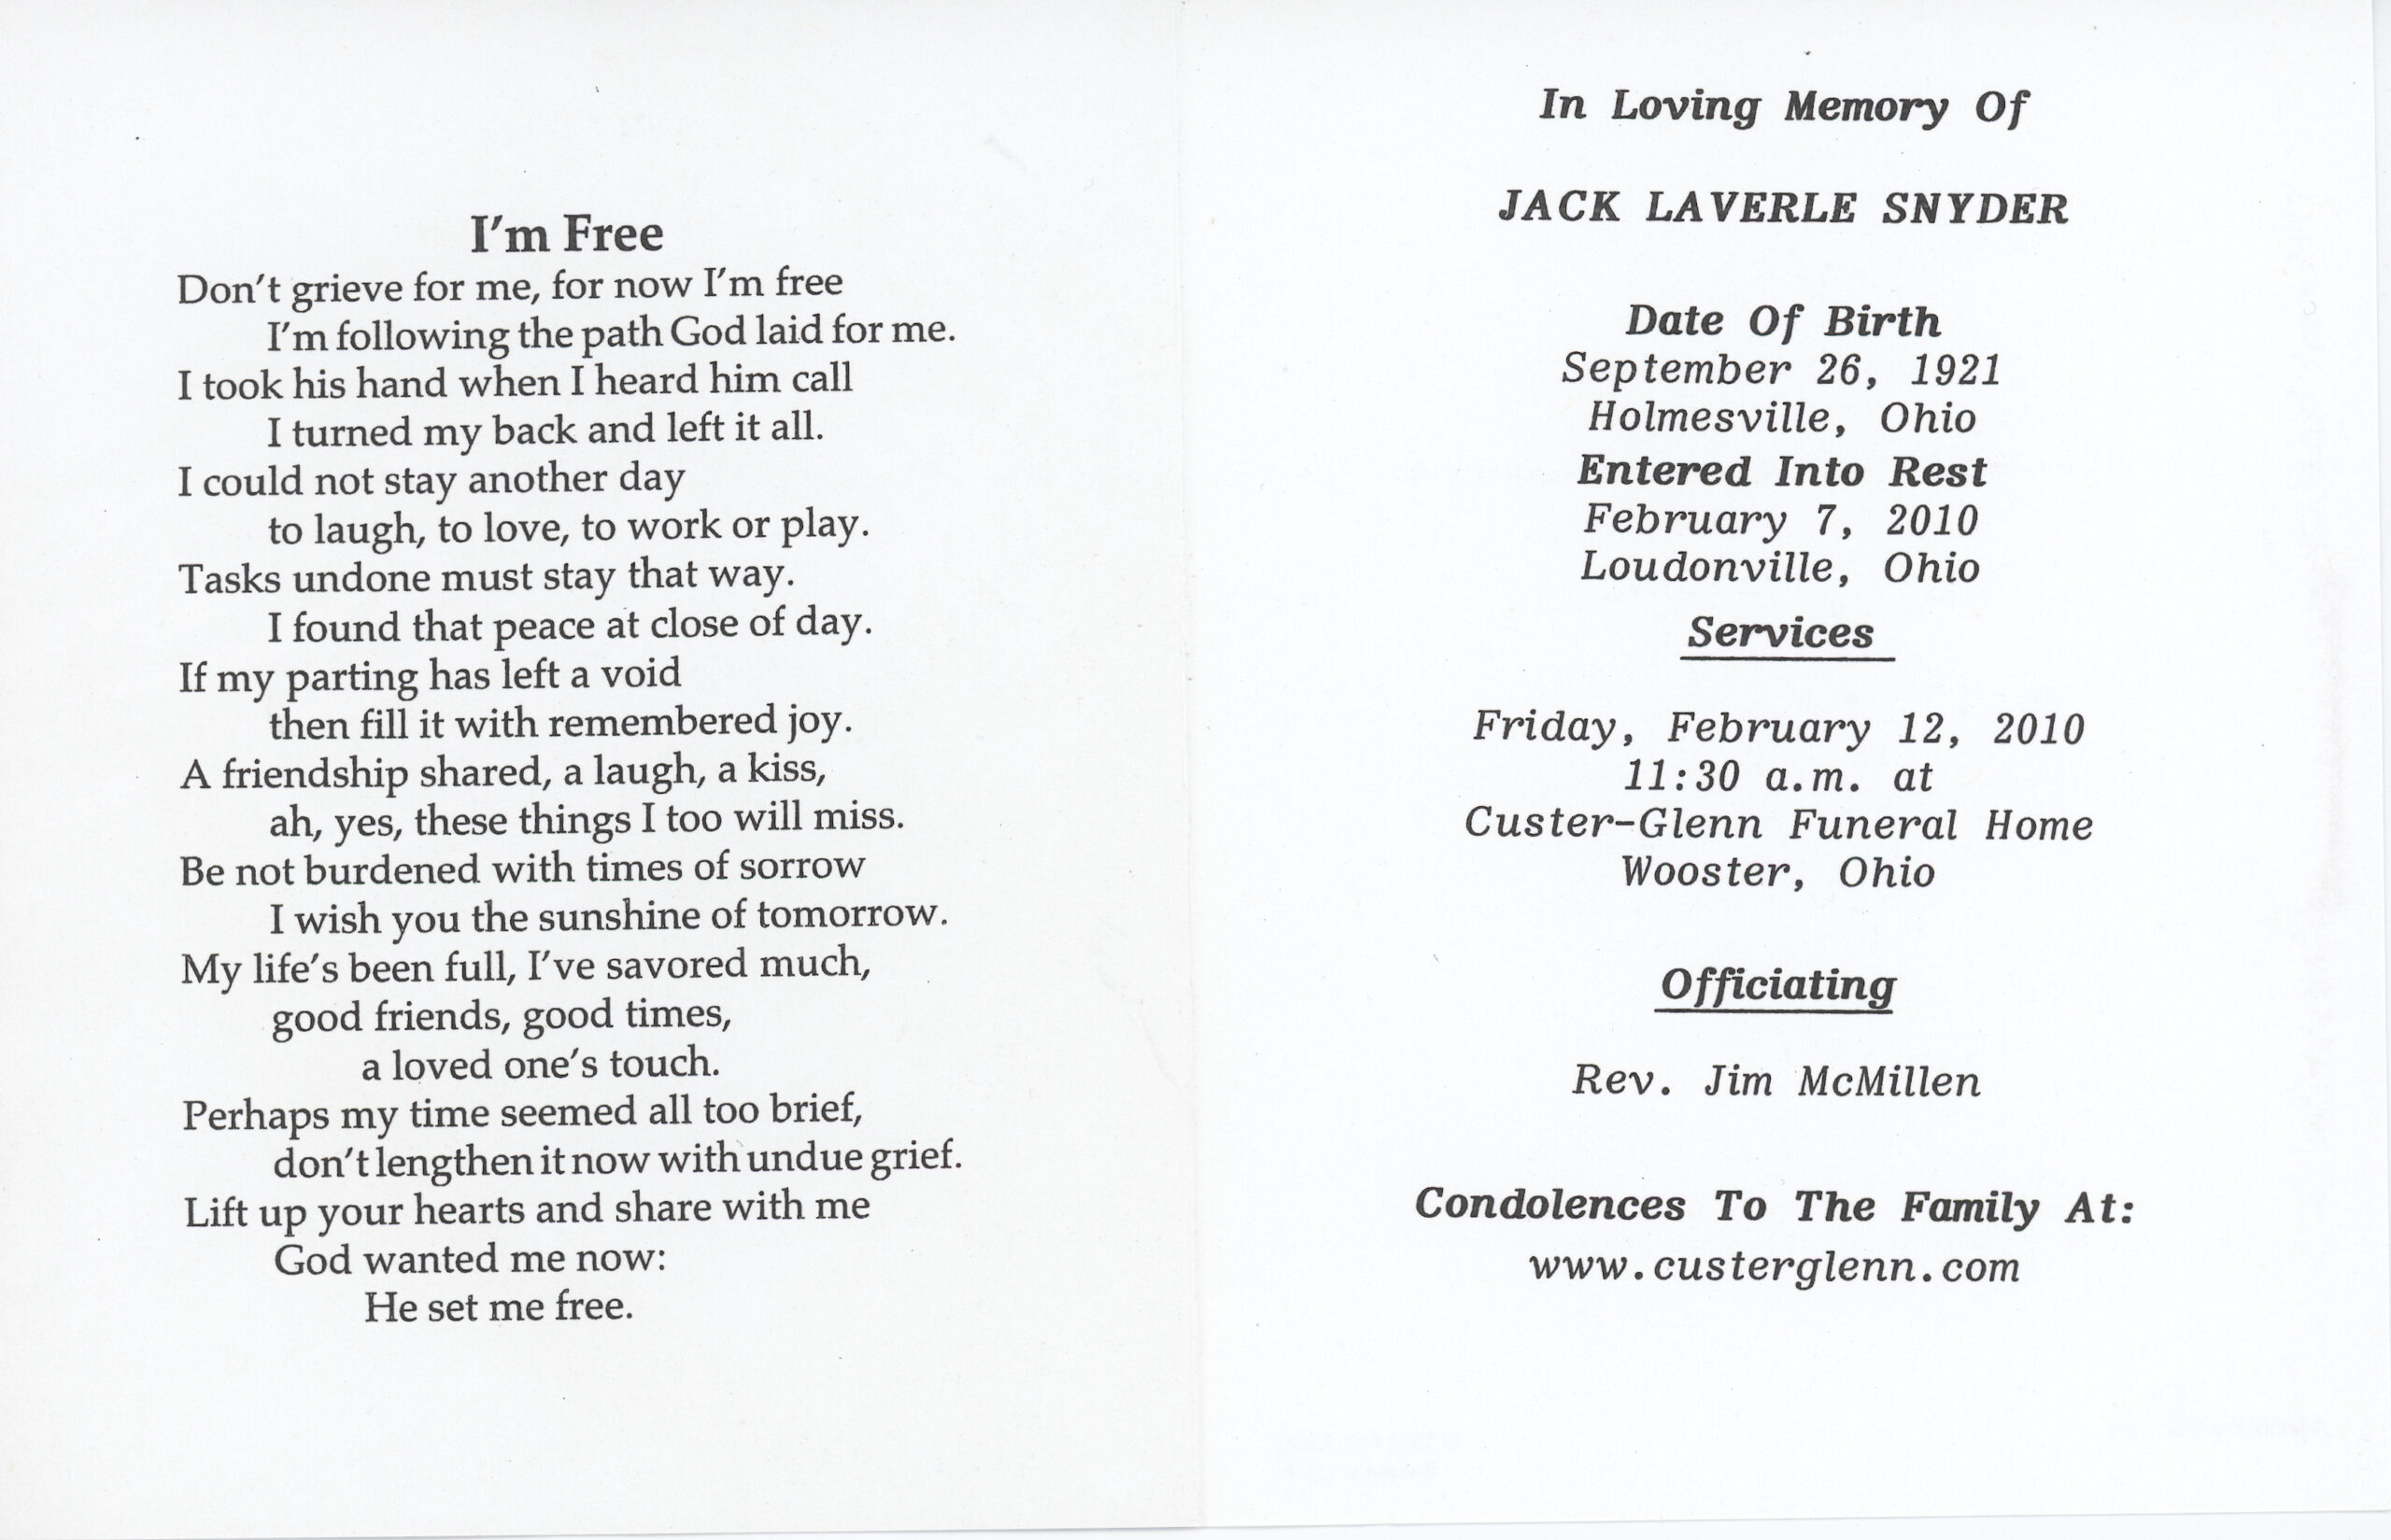 I'm Free
Don't grieve for me, for now I'm free
I'm following the path God laid for me.
I took his hand when I heard him call
I turned my back and left it all.
I could not stay another day
to laugh, to love, to work or play.
Tasks undone must stay that way.
I found that peace at close of day.
If my parting has left a void
then fill it with remembered joy.
A friendship shared, a laugh, a kiss,
ah, yes, these things I too will miss.
Be not burdened with times of sorrow
I wish you the sunshine of tomorrow.
My life's been full, I've savored much,
good friends, good times,
a loved one's touch.
Perhaps my time seemed all too brief,
don't lengthen it now with undue grief.
Lift up your hearts and share with me
God wanted me now:
He set me free.
In Loving Memory Of
JACK LAVERLE SNYDER
Date Of Birth
September 26, 1921
Holmesville, Ohio
Entered Into Rest
February 7, 2010
Loudonville, Ohio
Services
Friday, February 12, 2010
11:30 a.m. at
Custer-Glenn Funeral Home
Wooster, Ohio
Officiating
Rev. Jim McMillen
Condolences To The Family At:
www.custerglenn.com